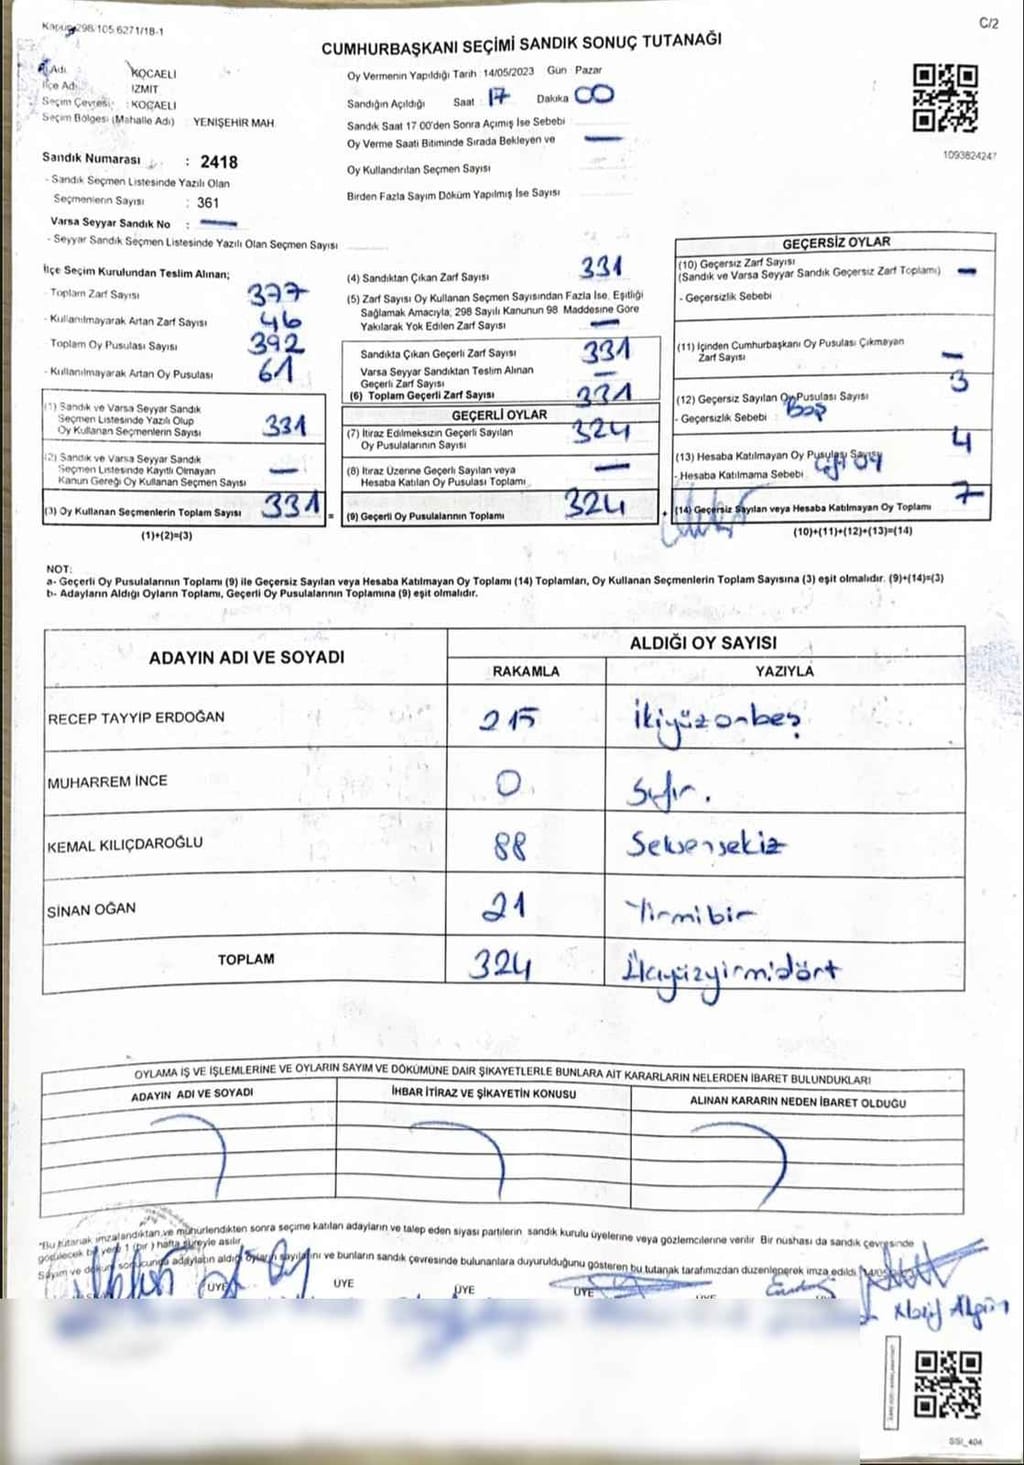 C/2
CUMHURBAŞKANI SEÇİMİ SANDIK SONUÇ TUTANAĞI
Adı KOCAELİ
İlçe Adı İZMİT
Seçim Çevresi : KOCAELİ
Seçim Bölgesi (Mahalle Adı) YENİŞEHİR MAH.
Sandık Numarası : 2418
- Sandık Seçmen Listesinde Yazılı Olan
Seçmenlerin Sayısı : 361
Varsa Seyyar Sandık No : —
- Seyyar Sandık Seçmen Listesinde Yazılı Olan Seçmen Sayısı
Oy Vermenin Yapıldığı Tarih 14/05/2023 Gün Pazar
Sandığın Açıldığı Saat 17 Dakika 00
Sandık Saat 17 00'den Sonra Açımış İse Sebebi
Oy Verme Saati Bitiminde Sırada Bekleyen ve —
Oy Kullandırılan Seçmen Sayısı
Birden Fazla Sayım Döküm Yapılmış İse Sayısı
1093824247
İlçe Seçim Kurulundan Teslim Alınan;
- Toplam Zarf Sayısı 377
- Kullanılmayarak Artan Zarf Sayısı 46
Toplam Oy Pusulası Sayısı 392
- Kullanılmayarak Artan Oy Pusulası 61
(1) Sandık ve Varsa Seyyar Sandık
Seçmen Listesinde Yazılı Olup
Oy Kullanan Seçmenlerin Sayısı 331
(2) Sandık ve Varsa Seyyar Sandık
Seçmen Listesinde Kayıtlı Olmayan
Kanun Gereği Oy Kullanan Seçmen Sayısı —
(3) Oy Kullanan Seçmenlerin Toplam Sayısı 331 =
(1)+(2)=(3)
(4) Sandıktan Çıkan Zarf Sayısı 331
(5) Zarf Sayısı Oy Kullanan Seçmen Sayısından Fazla İse, Eşitliği
Sağlamak Amacıyla, 298 Sayılı Kanunun 98 Maddesine Göre
Yakılarak Yok Edilen Zarf Sayısı —
Sandıkta Çıkan Geçerli Zarf Sayısı 331
Varsa Seyyar Sandıktan Teslim Alınan
Geçerli Zarf Sayısı —
(6) Toplam Geçerli Zarf Sayısı 331
GEÇERLİ OYLAR
(7) İtiraz Edilmeksizin Geçerli Sayılan
Oy Pusulalarının Sayısı 324
(8) İtiraz Üzerine Geçerli Sayılan veya
Hesaba Katılan Oy Pusulası Toplamı —
(9) Geçerli Oy Pusulalarının Toplamı 324 +
GEÇERSİZ OYLAR
(10) Geçersiz Zarf Sayısı
(Sandık ve Varsa Seyyar Sandık Geçersiz Zarf Toplamı) —
- Geçersizlik Sebebi
(11) İçinden Cumhurbaşkanı Oy Pusulası Çıkmayan
Zarf Sayısı —
(12) Geçersiz Sayılan Oy Pusulası Sayısı 3
- Geçersizlik Sebebi : Boş
(13) Hesaba Katılmayan Oy Pusulası Sayısı 4
- Hesaba Katılmama Sebebi Çift oy
(14) Geçersiz Sayılan veya Hesaba Katılmayan Oy Toplamı 7
(10)+(11)+(12)+(13)=(14)
NOT:
a- Geçerli Oy Pusulalarının Toplamı (9) ile Geçersiz Sayılan veya Hesaba Katılmayan Oy Toplamı (14) Toplamları, Oy Kullanan Seçmenlerin Toplam Sayısına (3) eşit olmalıdır. (9)+(14)=(3)
b- Adayların Aldığı Oyların Toplamı, Geçerli Oy Pusulalarının Toplamına (9) eşit olmalıdır.
ADAYIN ADI VE SOYADI ALDIĞI OY SAYISI
RAKAMLA YAZIYLA
RECEP TAYYİP ERDOĞAN 215 İkiyüzonbeş
MUHARREM İNCE 0 Sıfır.
KEMAL KILIÇDAROĞLU 88 Seksensekiz
SİNAN OĞAN 21 Yirmibir
TOPLAM 324 Üçyüzyirmidört
OYLAMA İŞ VE İŞLEMLERİNE VE OYLARIN SAYIM VE DÖKÜMÜNE DAİR ŞİKAYETLERLE BUNLARA AİT KARARLARIN NELERDEN İBARET BULUNDUKLARI
ADAYIN ADI VE SOYADI İHBAR İTİRAZ VE ŞİKAYETİN KONUSU ALINAN KARARIN NEDEN İBARET OLDUĞU
"Bu tutanak imzalandıktan ve mühürlendikten sonra seçime katılan adayların ve talep eden siyasi partilerin sandık kurulu üyelerine veya gözlemcilerine verilir Bir nüshası da sandık çevresinde
görülecek bir yere 1 (bir) hafta süreyle asılır.
Sayım ve döküm sonucunda adayların aldığı oyların sayılarını ve bunların sandık çevresinde bulunanlara duyurulduğunu gösteren bu tutanak tarafımızdan düzenlenerek imza edildi
ÜYE ÜYE ÜYE ÜYE
SSI_404